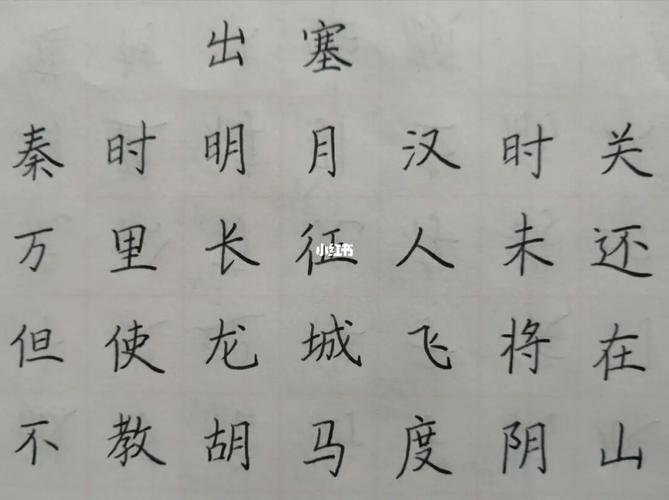 出塞
秦时明月汉时关
万里长征人未还
小红书
但使龙城飞将在
不教胡马度阴山